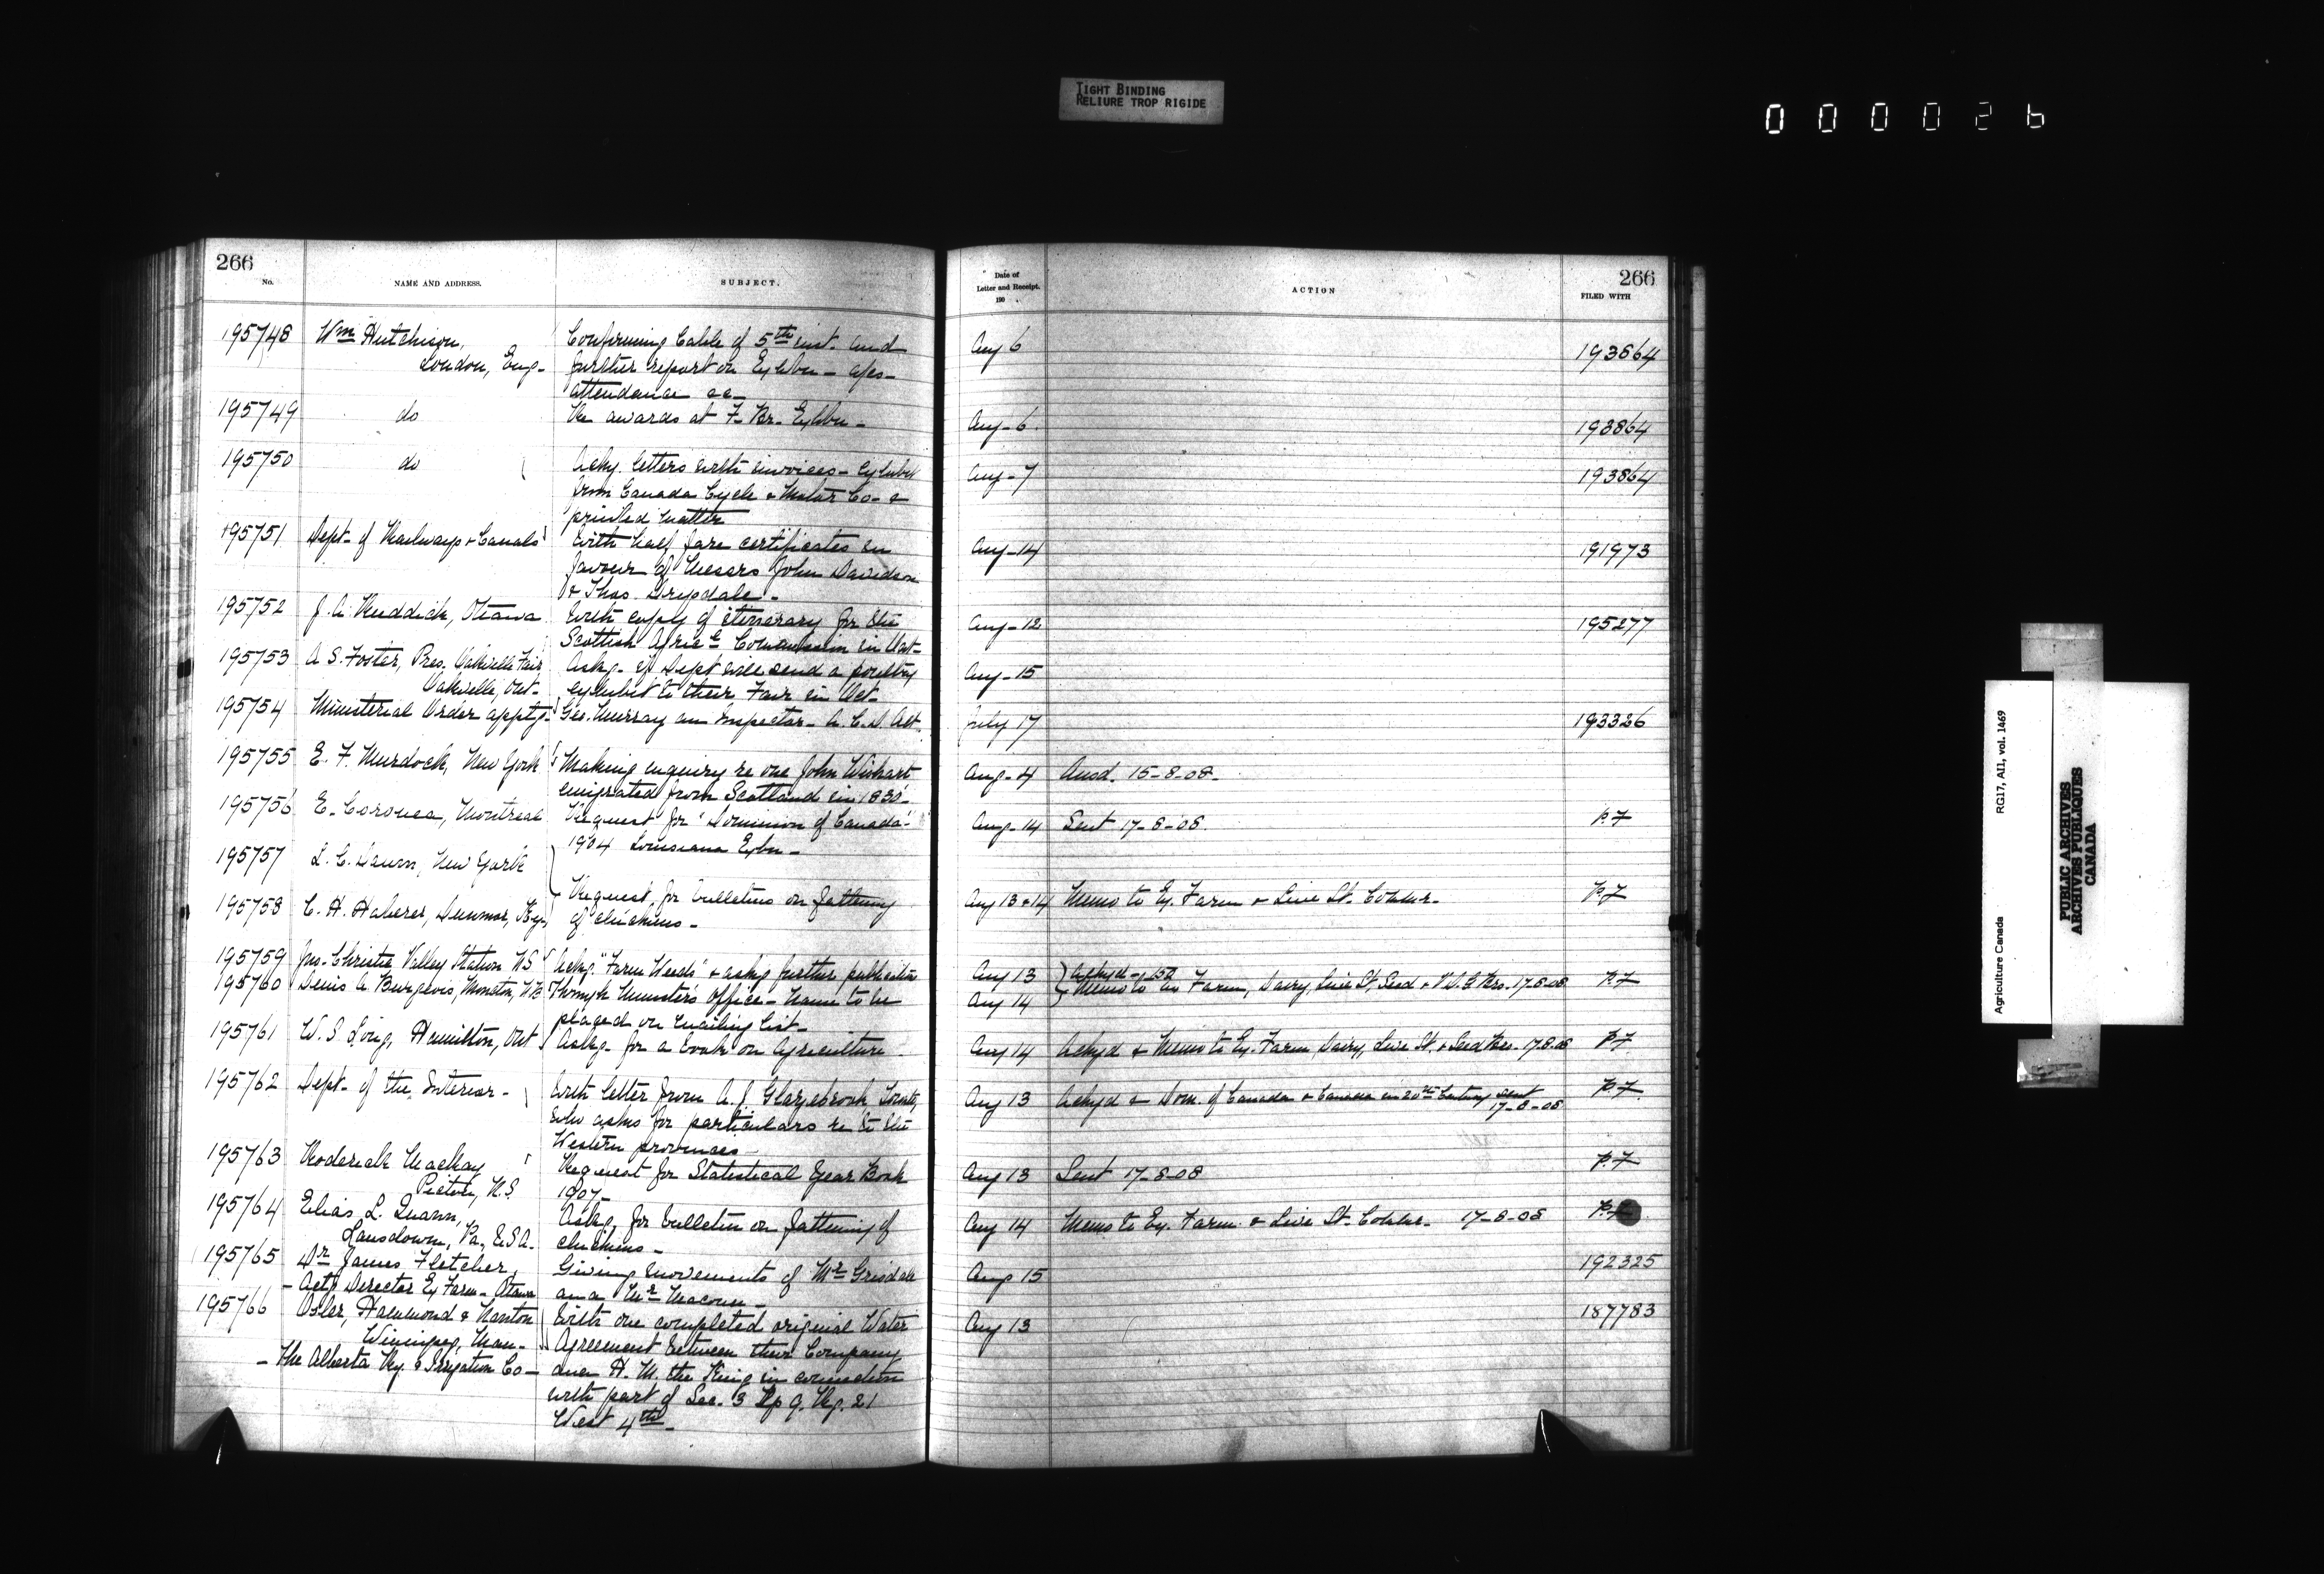 TIGHT BINDING
RELIURE TROP RIGIDE
0 0 0 0 2 6
266
No. NAME AND ADDRESS. SUBJECT.
195748 Wm Hutchison, Confirming Cable of 5th inst. and
London, Eng- further report on Exhbn -
attendance
195749 do Re awards at F. Br. Exhbn -
195750 do Ackg. letters with invoices - Exhibit
from Canada Cycle & Motor Co- &
printed matter
195751 Dept- of Railways & Canals With half fare certificates in
favour of Messrs John Davidson
& Thos. Drysdale -
195752 J. A. Ruddick, Ottawa With copy of itinerary for the
Scottish Agricl Commission in
195753 A S. Foster, Pres. Oakville Fair Askg- if Dept will send a poultry
Oakville, Ont- exhibit to their Fair in Oct-
195754 Ministerial Order apptg- Geo. Murray an Inspector- A. C. D. Act
195755 E. F. Murdock, New York Making enquiry re one John Wishart
emigrated from Scotland in 1830-
195756 E. Coronea, Montreal Request for "Dominion of Canada"
1904 Louisiana Exbn -
195757 L. C. New York
195758 C. H. Haberer, Ky. Request for bulletins on fattening
of chickens -
195759 Jno. Christie Valley Station NS Ackg. "Farm Weeds" & askg further publication
195760 Denis A. Burgevis, Moncton, NB Through Minister's Office - Name to be
placed on mailing list -
195761 W. S. Hamilton, Ont Askg- for a book on Agriculture
195762 Dept- of the Interior - With letter from A. J. Glazebrook Toronto,
who asks for particulars re to the
Western provinces
195763 Roderick MacKay Request for Statistical Year Book
Pictou, N.S. 1907-
195764 Elias L. Askg. for bulletin on fattening of
Lansdowne, Pa., U.S.A. chickens -
195765 Dr James Fletcher, Giving movements of Mr Grisdale
- Actg Director Ex Farm- Ottawa and Mr Macoun -
195766 Osler, Hammond & Nanton With one completed original Water
Winnipeg, Man- Agreement between their Company
- The Alberta Ry. & Irrigation Co - and H. M. the King in connection
with part of Sec. 3 Tp 9. Rg. 21
West 4th -
266
Date of
Letter and Receipt.
190 .
ACTION
FILED WITH
Aug 6 193864
Aug- 6 193864
Aug- 7 193864
Aug- 14 191973
Aug- 12 195277
Aug- 15
July 17 193326
Aug- 4 Ansd. 15-8-08-
Aug- 14 Sent 17-8-08. P.7
Aug 13 & 14 Memo to Ex. Farm & Live St. Commr- P.7
Aug 13 Ackgd -
Aug 14 Memo to Ex Farm, Dairy, Live St, Seed & 17-8-08 P.7
Aug 14 Ackgd & Memo to Ex. Farm Dairy, Live St. & Seed 17.8.08 P.7
Aug 13 Ackgd & Dom. of Canada & Canada in 20th Century sent
17-8-08 P.7
Aug 13 Sent 17-8-08 P.7
Aug 14 Memo to Ex. Farm & Live St- Commr- 17-8-08 P.7
Aug 15 192325
Aug 13 187783
Agriculture Canada RG17, AII, vol. 1469
PUBLIC ARCHIVES
ARCHIVES PUBLIQUES
CANADA